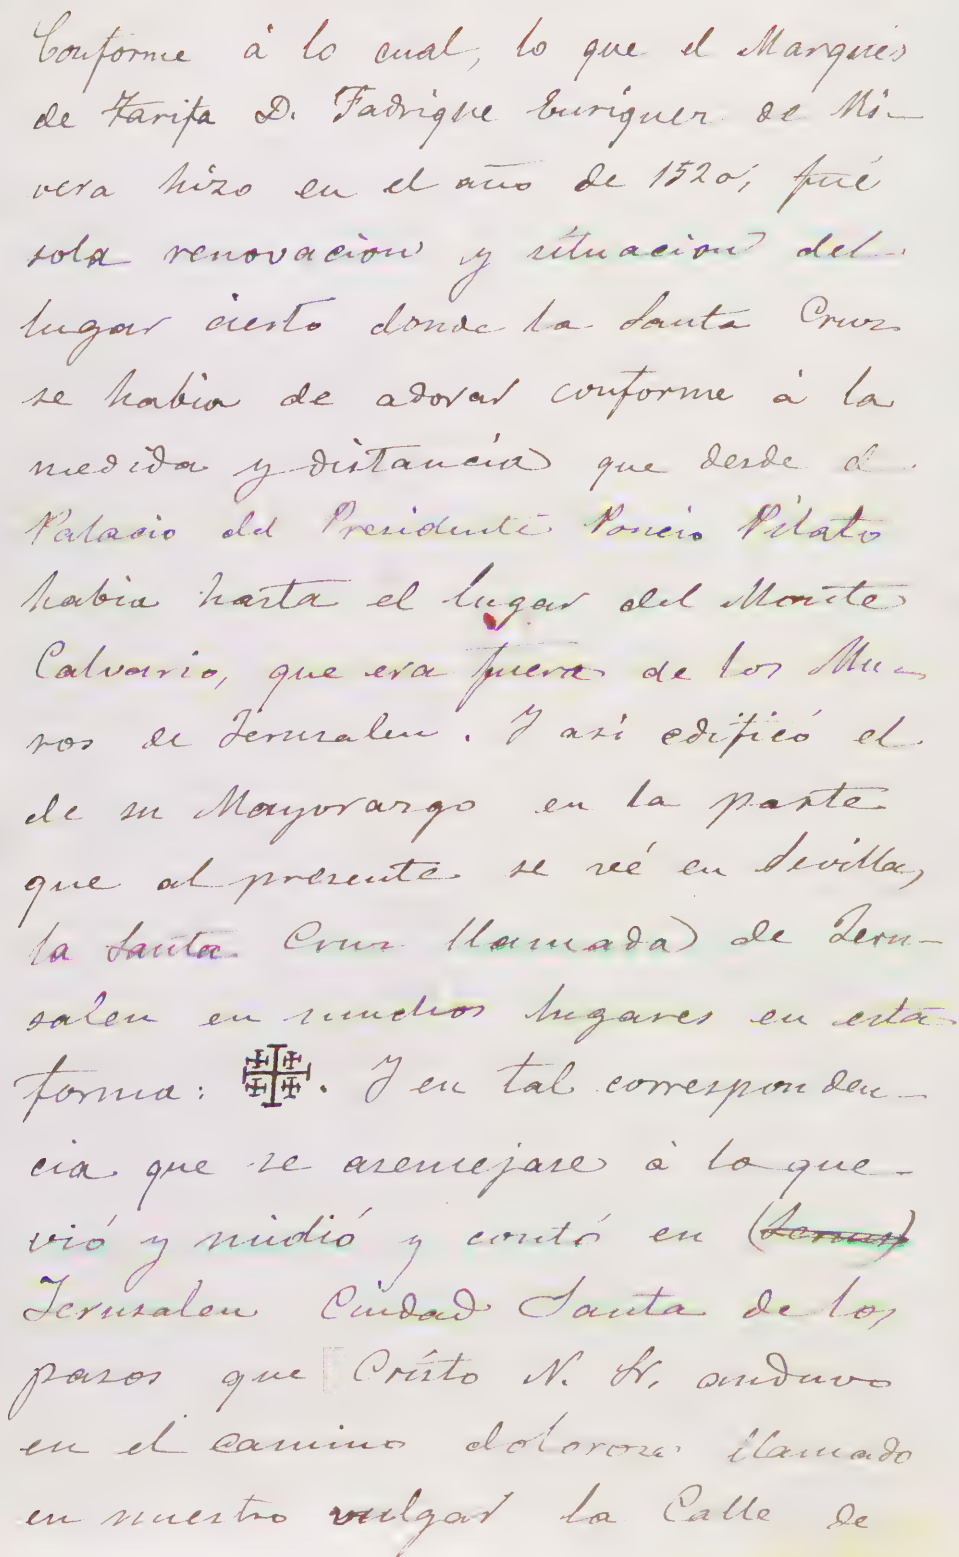 Conforme á lo cual, lo que el Marqués
de Tarifa D. Fadrique Enriquez de Ri-
vera hizo en el año de 1520, fué
sola renovacion y situacion del
lugar cierto donde la Santa Cruz
se habia de adorar conforme á la
medida y distancia que desde el
Palacio del Presidente Poncio Pilato
habia hasta el lugar del Monte
Calvario, que era fuera de los Mu-
ros de Jerusalen. Y asi edificó el
de su Mayorazgo en la parte
que al presente se vé en Sevilla,
la Santa Cruz llamada de Jeru-
salen en muchos lugares en esta
forma: . Y en tal corresponden-
cia que se asemejase á lo que
vió y midió y contó en (Jerus)
Jerusalen Ciudad Santa de los
pasos que Cristo N. Sr. anduvo
en el camino doloroso llamado
en nuestro vulgar la Calle de